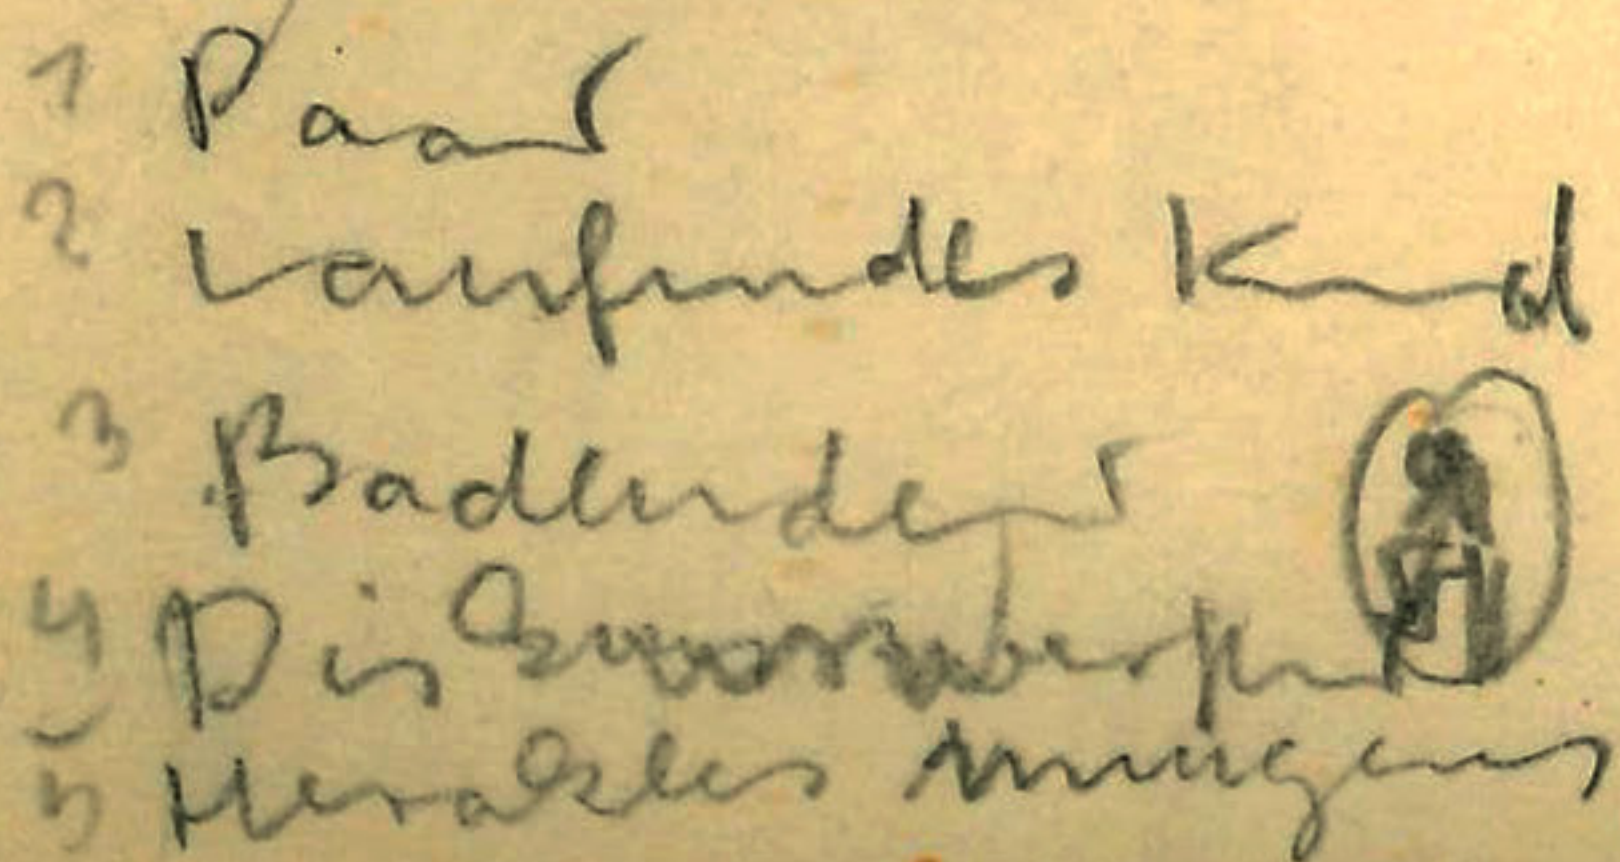 1 Paar
2 Laufendes Kind
3 Badender
4 Diskuswerfer
5 Herakles